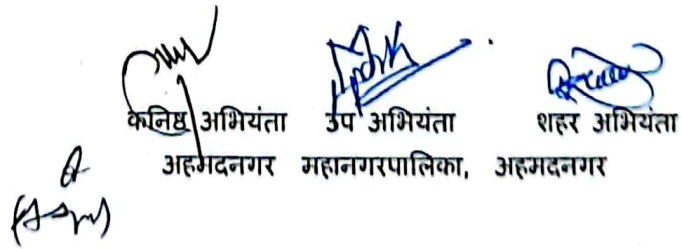 कनिष्ठ अभियंता उप अभियंता शहर अभियंता
अहमदनगर महानगरपालिका, अहमदनगर